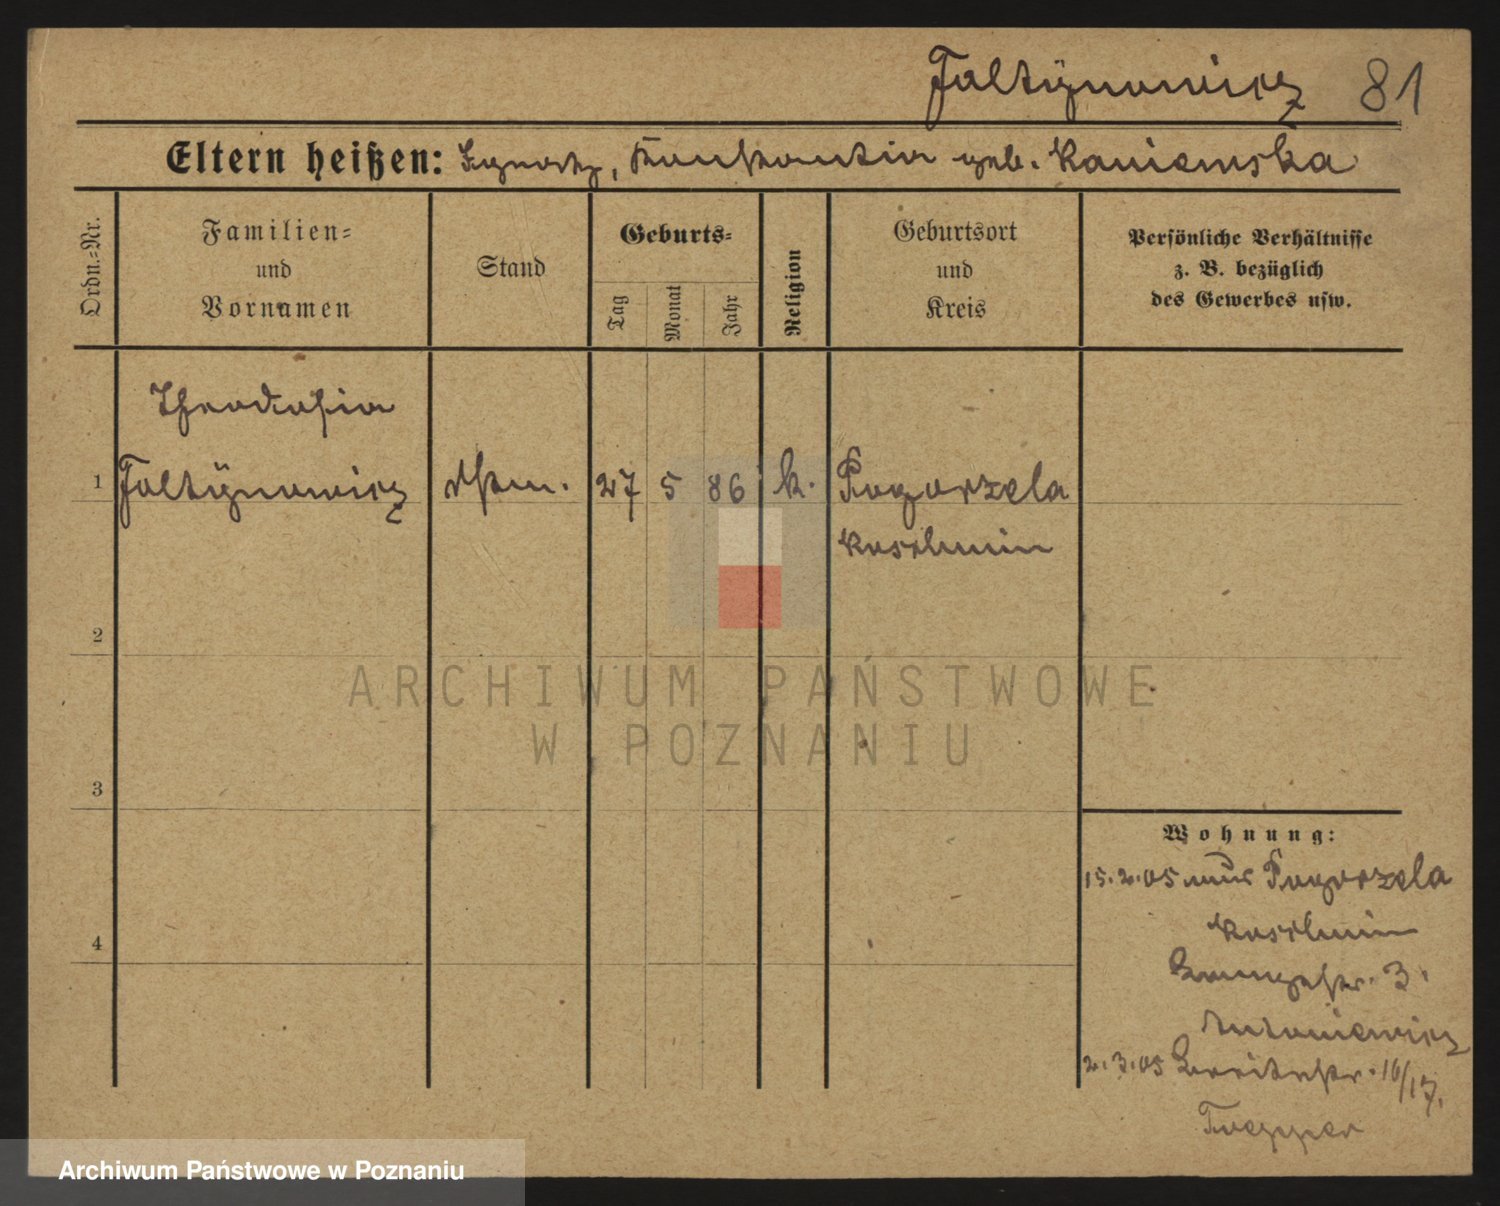 Foltÿnowicz 81
Eltern heißen: Ignatz, Konstantia geb. Kaniewska
Ordn.-Nr.
Familien-
und
Vornamen
Stand
Geburts-
Tag
Monat
Jahr
Religion
Geburtsort
und
Kreis
Persönliche Verhältnisse
z. B. bezüglich
des Gewerbes usw.
Theodosia
1 Foltÿnowicz 27 5 86 k. Pogorzela
Koschmin
2
3
4
Wohnung:
15.2.05 aus Pogorzela
Koschmin
3.
Antoniewicz
2.3.05 Breitestr. 16/17.
Toepper
ARCHIWUM PAŃSTWOWE
W POZNANIU
Archiwum Państwowe w Poznaniu